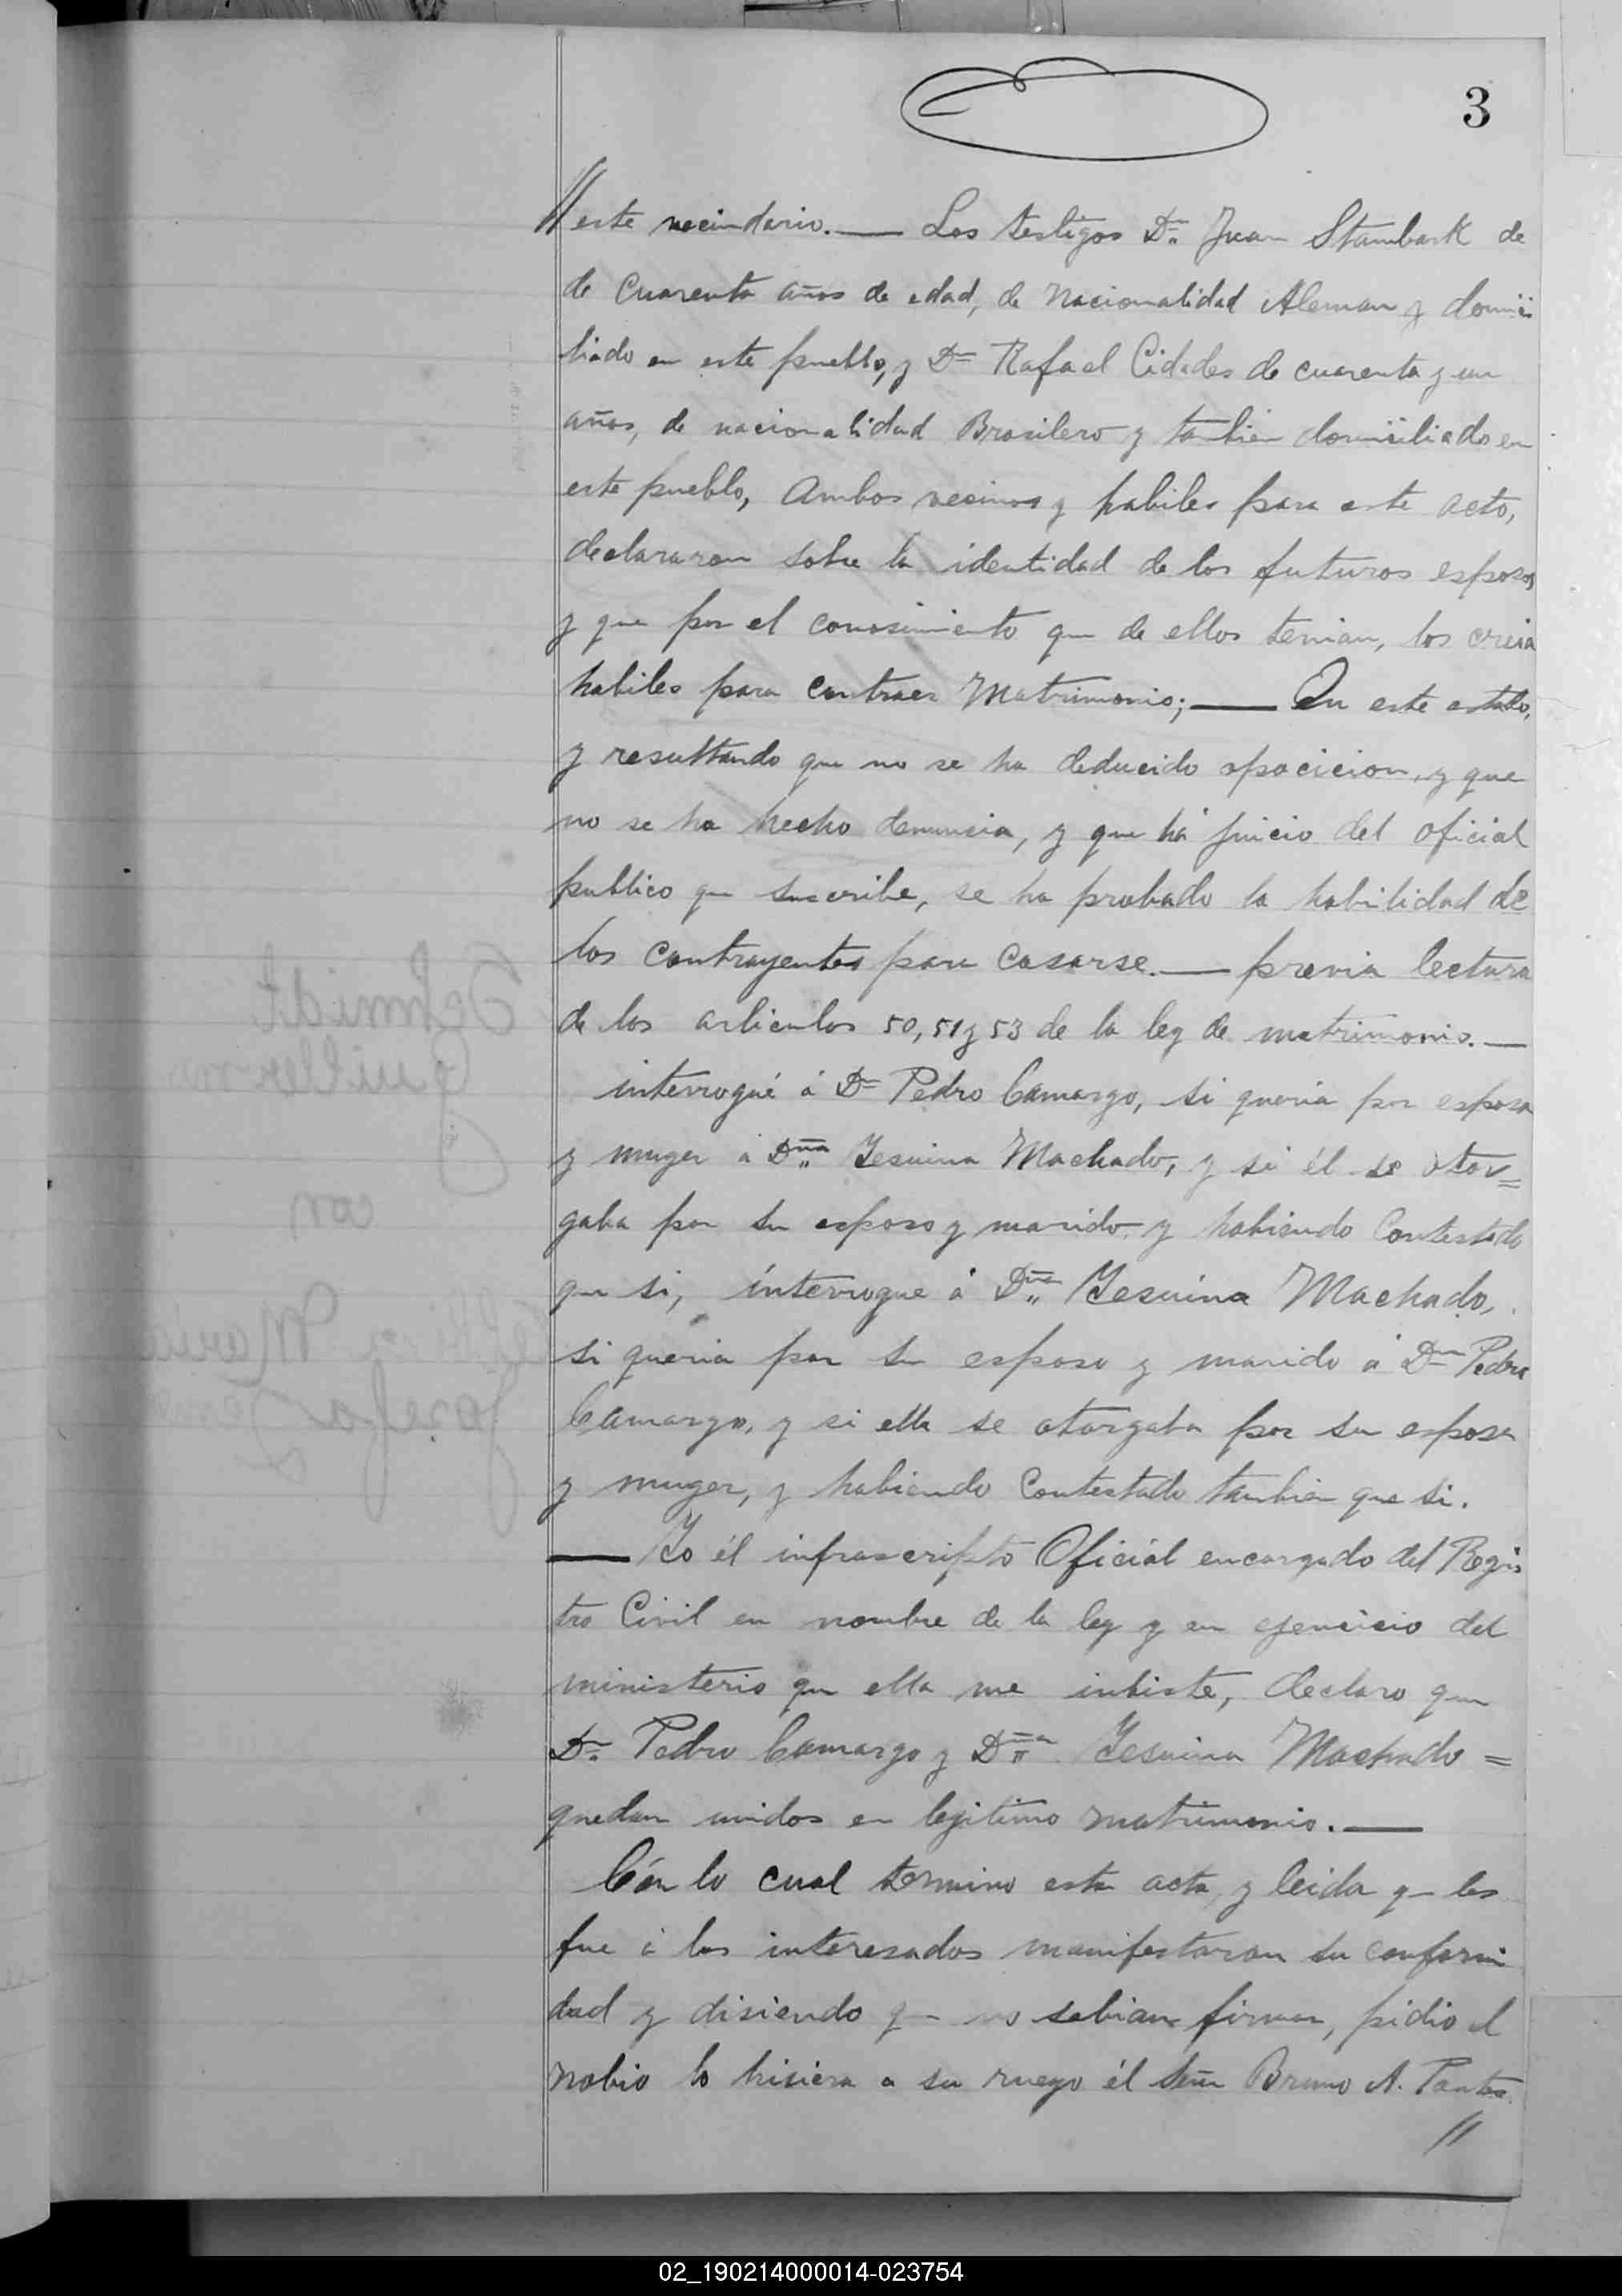 3
// este vecindario. — Los testigos Dn. Juan Stambark de
de cuarenta años de edad, de Nacionalidad Aleman y domici
liado en este pueblo, y Dn Rafael Cidades de cuarenta y un
años, de nacionalidad Brasilero y tambien domisiliado en
este pueblo, Ambos vecinos y habiles para este acto,
declararon sobre la identidad de los futuros esposos
y que por el conosimiento que de ellos tenian, los creia
habiles para contraer Matrimonio; — En este estado,
y resultando que no se ha deducido opocicion, y que
no se ha hecho denuncia, y que há juicio del oficial
publico que suscribe, se ha probado la habilidad de
los contrayentes para casarse. — previa lectura
de los articulos 50, 51 y 53 de la ley de matrimonio. —
interrogué á Dn Pedro Camargo, si queria por esposa
y muger á Dña Jesuina Machado, y si él se otor=
gaba por su esposo y marido y habiendo Contestado
que si, interrogue á Dña Jesuina Machado,
si queria por su esposo y marido á Dn Pedro
Camargo, y si ella se otorgaba por su esposa
y muger, y habiendo Contestado tambien que si.
— Yo él infrascripto Oficial encargado del Regis
tro Civil en nombre de la ley y en ejercicio del
ministerio que ella me inbiste, declaro que
Dn. Pedro Camargo y Dña Jesuina Machado =
quedan unidos en legitimo matrimonio. —
Cón lo cual termino esta acta, y leida que les
fue á los interesados manifestaron su conformi
dad y disiendo que no sabian firmar, pidio el
nobio lo hisiera a su ruego él Señr Bruno A.
//
Schmidt
Guillermo
con
Maria
Josefa
02_190214000014-023754